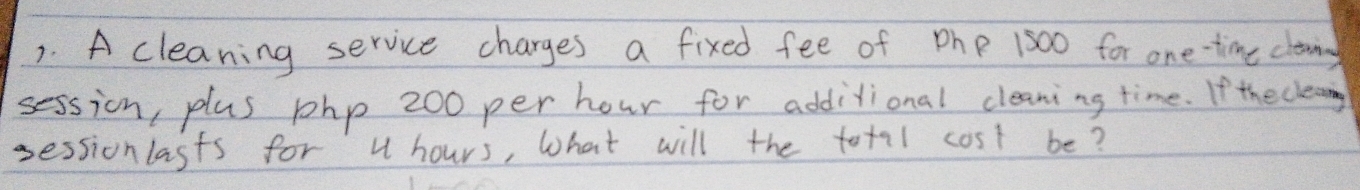 1. A cleaning service charges a fixed fee of Php 1500 for one-time cleaning
session, plus php 200 per hour for additional cleaning time. If the cleaning
session lasts for 4 hours, What will the total cost be?